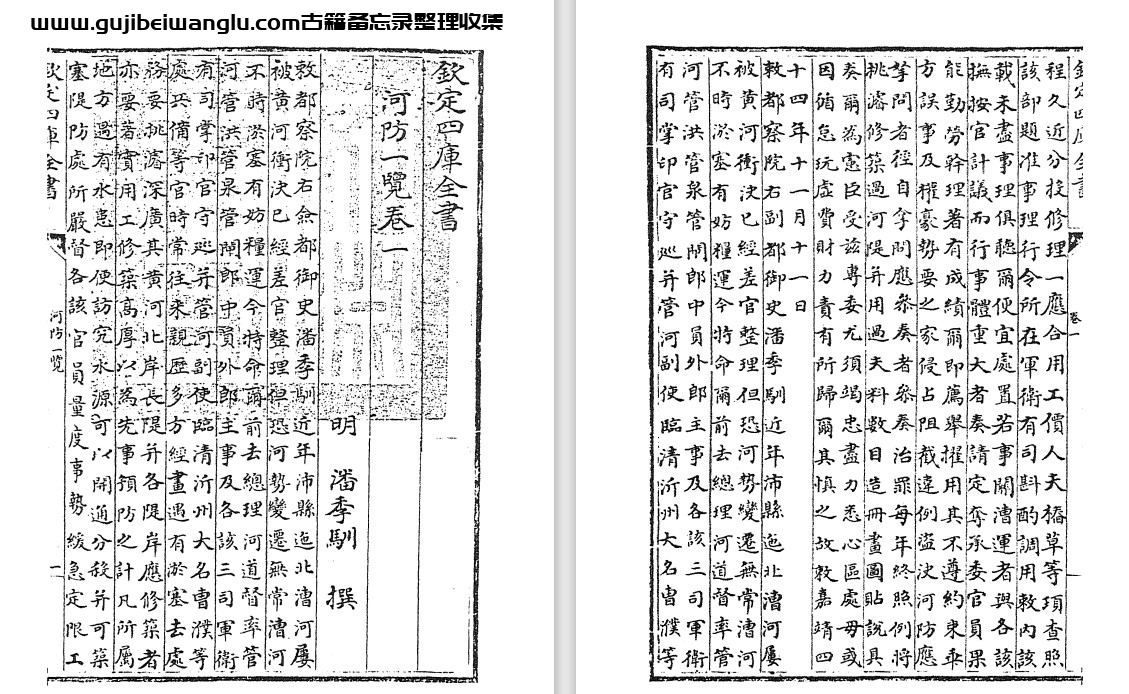 www.gujibeiwanglu.com古籍备忘录整理收集
欽定四庫全書
河防一覽卷一
明 潘季馴 撰
敕都察院右僉都御史潘季馴近年沛縣迤北漕河屢
被黃河衝決已經差官整理但恐河勢變遷無常漕河
不時淤塞有妨糧運今特命爾前去總理河道督率管
河管洪管泉管閘郎中員外郎主事及各該三司軍衛
有司掌印官守巡并管河副使臨清沂州大名曹濮等
處兵備等官時常往來親歷多方經畫遇有淤塞去處
務要挑濬深廣其黃河北岸長隄并各隄岸應修築者
亦要著實用工修築高厚以為先事預防之計凡所屬
地方遇有水患即便訪究水源可以開通分殺并可築
塞隄防處所嚴督各該官員量度事勢緩急定限工
欽定四庫全書
河防一覽
一
欽定四庫全書
卷一
程久近分投修理一應合用工價人夫樁草等項查照
該部題准事理行令所在軍衛有司斟酌調用敕內該
載未盡事理俱聽爾便宜處置若事關漕運者與各該
撫按官計議而行事體重大者奏請定奪承委官員果
能勤勞幹理著有成績爾即薦舉擢用其不遵約束乖
方誤事及權豪勢要之家侵占阻截違例盜決河防應
拏問者徑自拏問應叅奏者叅奏治罪每年終照例將
挑濬修築過河隄并用過夫料數目造冊畫圖貼說具
奏爾為憲臣受茲專委尤須竭忠盡力悉心區處毋或
因循怠玩虛費財力責有所歸爾其慎之故敕嘉靖四
十四年十一月十一日
敕都察院右副都御史潘季馴近年沛縣迤北漕河屢
被黃河衝決已經差官整理但恐河勢變遷無常漕河
不時淤塞有妨糧運今特命爾前去總理河道督率管
河管洪管泉管閘郎中員外郎主事及各該三司軍衛
有司掌印官守巡并管河副使臨清沂州大名曹濮等